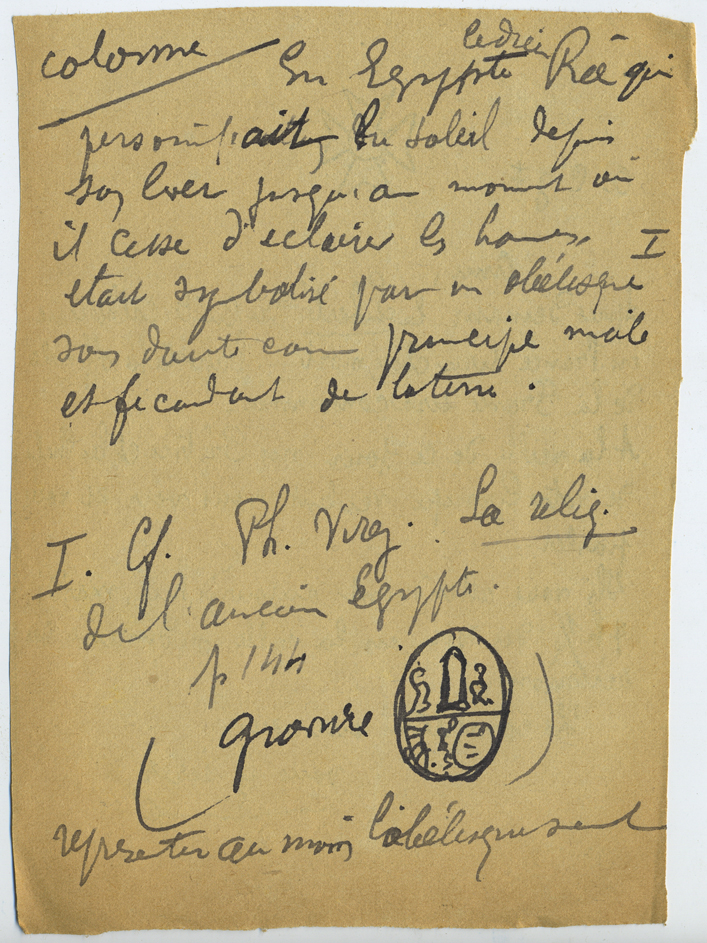 colonne
En Egypte le dieu Râ qui
personnifiait le soleil depuis
son lever jusqu'au moment où
il cesse d'éclairer les hommes, I
était symbolisé par un obélisque
sans doute comme principe male
et fécondant de la terre.
I. Cf. Ph. Virey. La relig.
de l'ancien Egypte.
p 144
(gravure )
représenter au moins l'obélisque seul